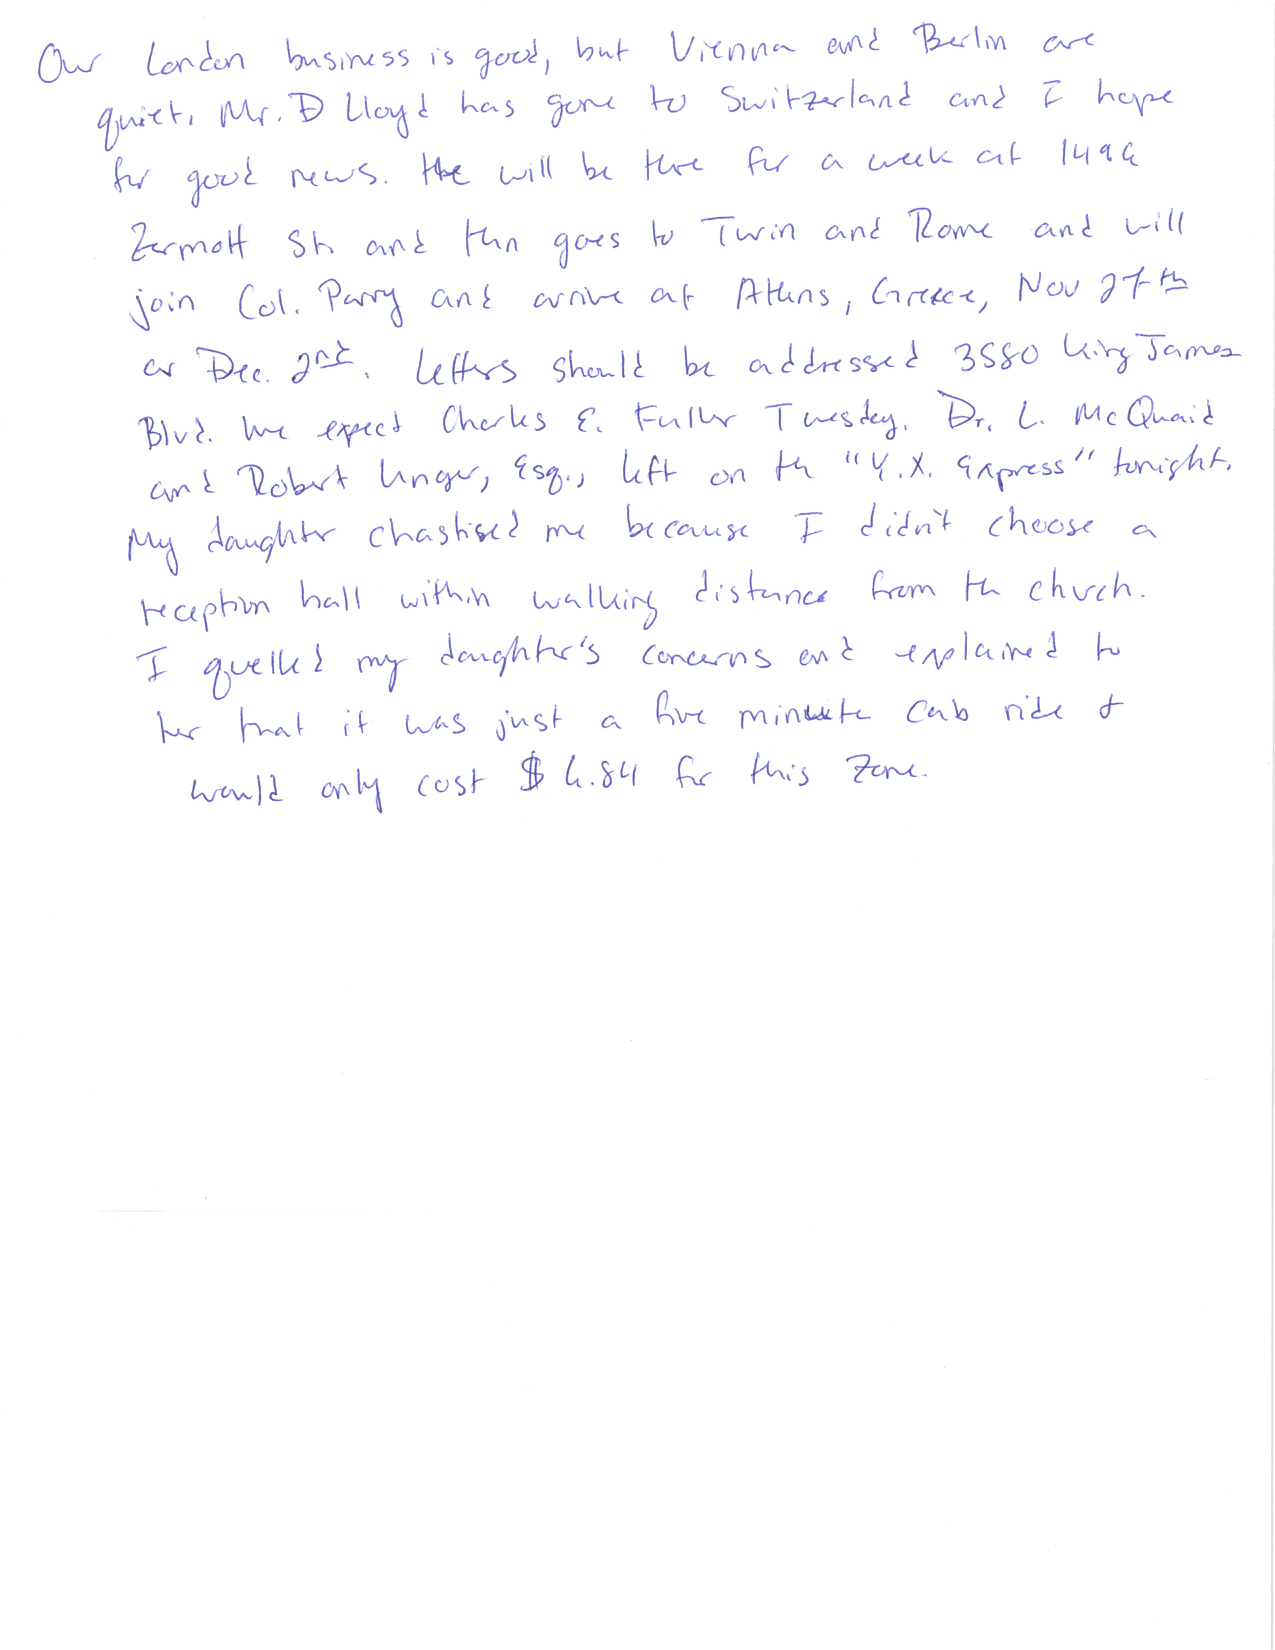 Our London business is good, but Vienna and Berlin are
quiet. Mr. D Lloyd has gone to Switzerland and I hope
for good news. He will be there for a week at 1496
Zermott St. and then goes to Turin and Rome and will
join Col. Parry and arrive at Athens, Greece, Nov 27th
or Dec. 2nd. Letters should be addressed 3580 King James
Blvd. We expect Charles E. Fuller Tuesday. Dr. L. McQuaid
and Robert Unger, Esq., left on the "Y.X. Express" tonight.
My daughter chastised me because I didn't choose a
reception hall within walking distance from the church.
I quelled my daughter's concerns and explained to
her that it was just a five minute cab ride &
would only cost $6.84 for this zone.